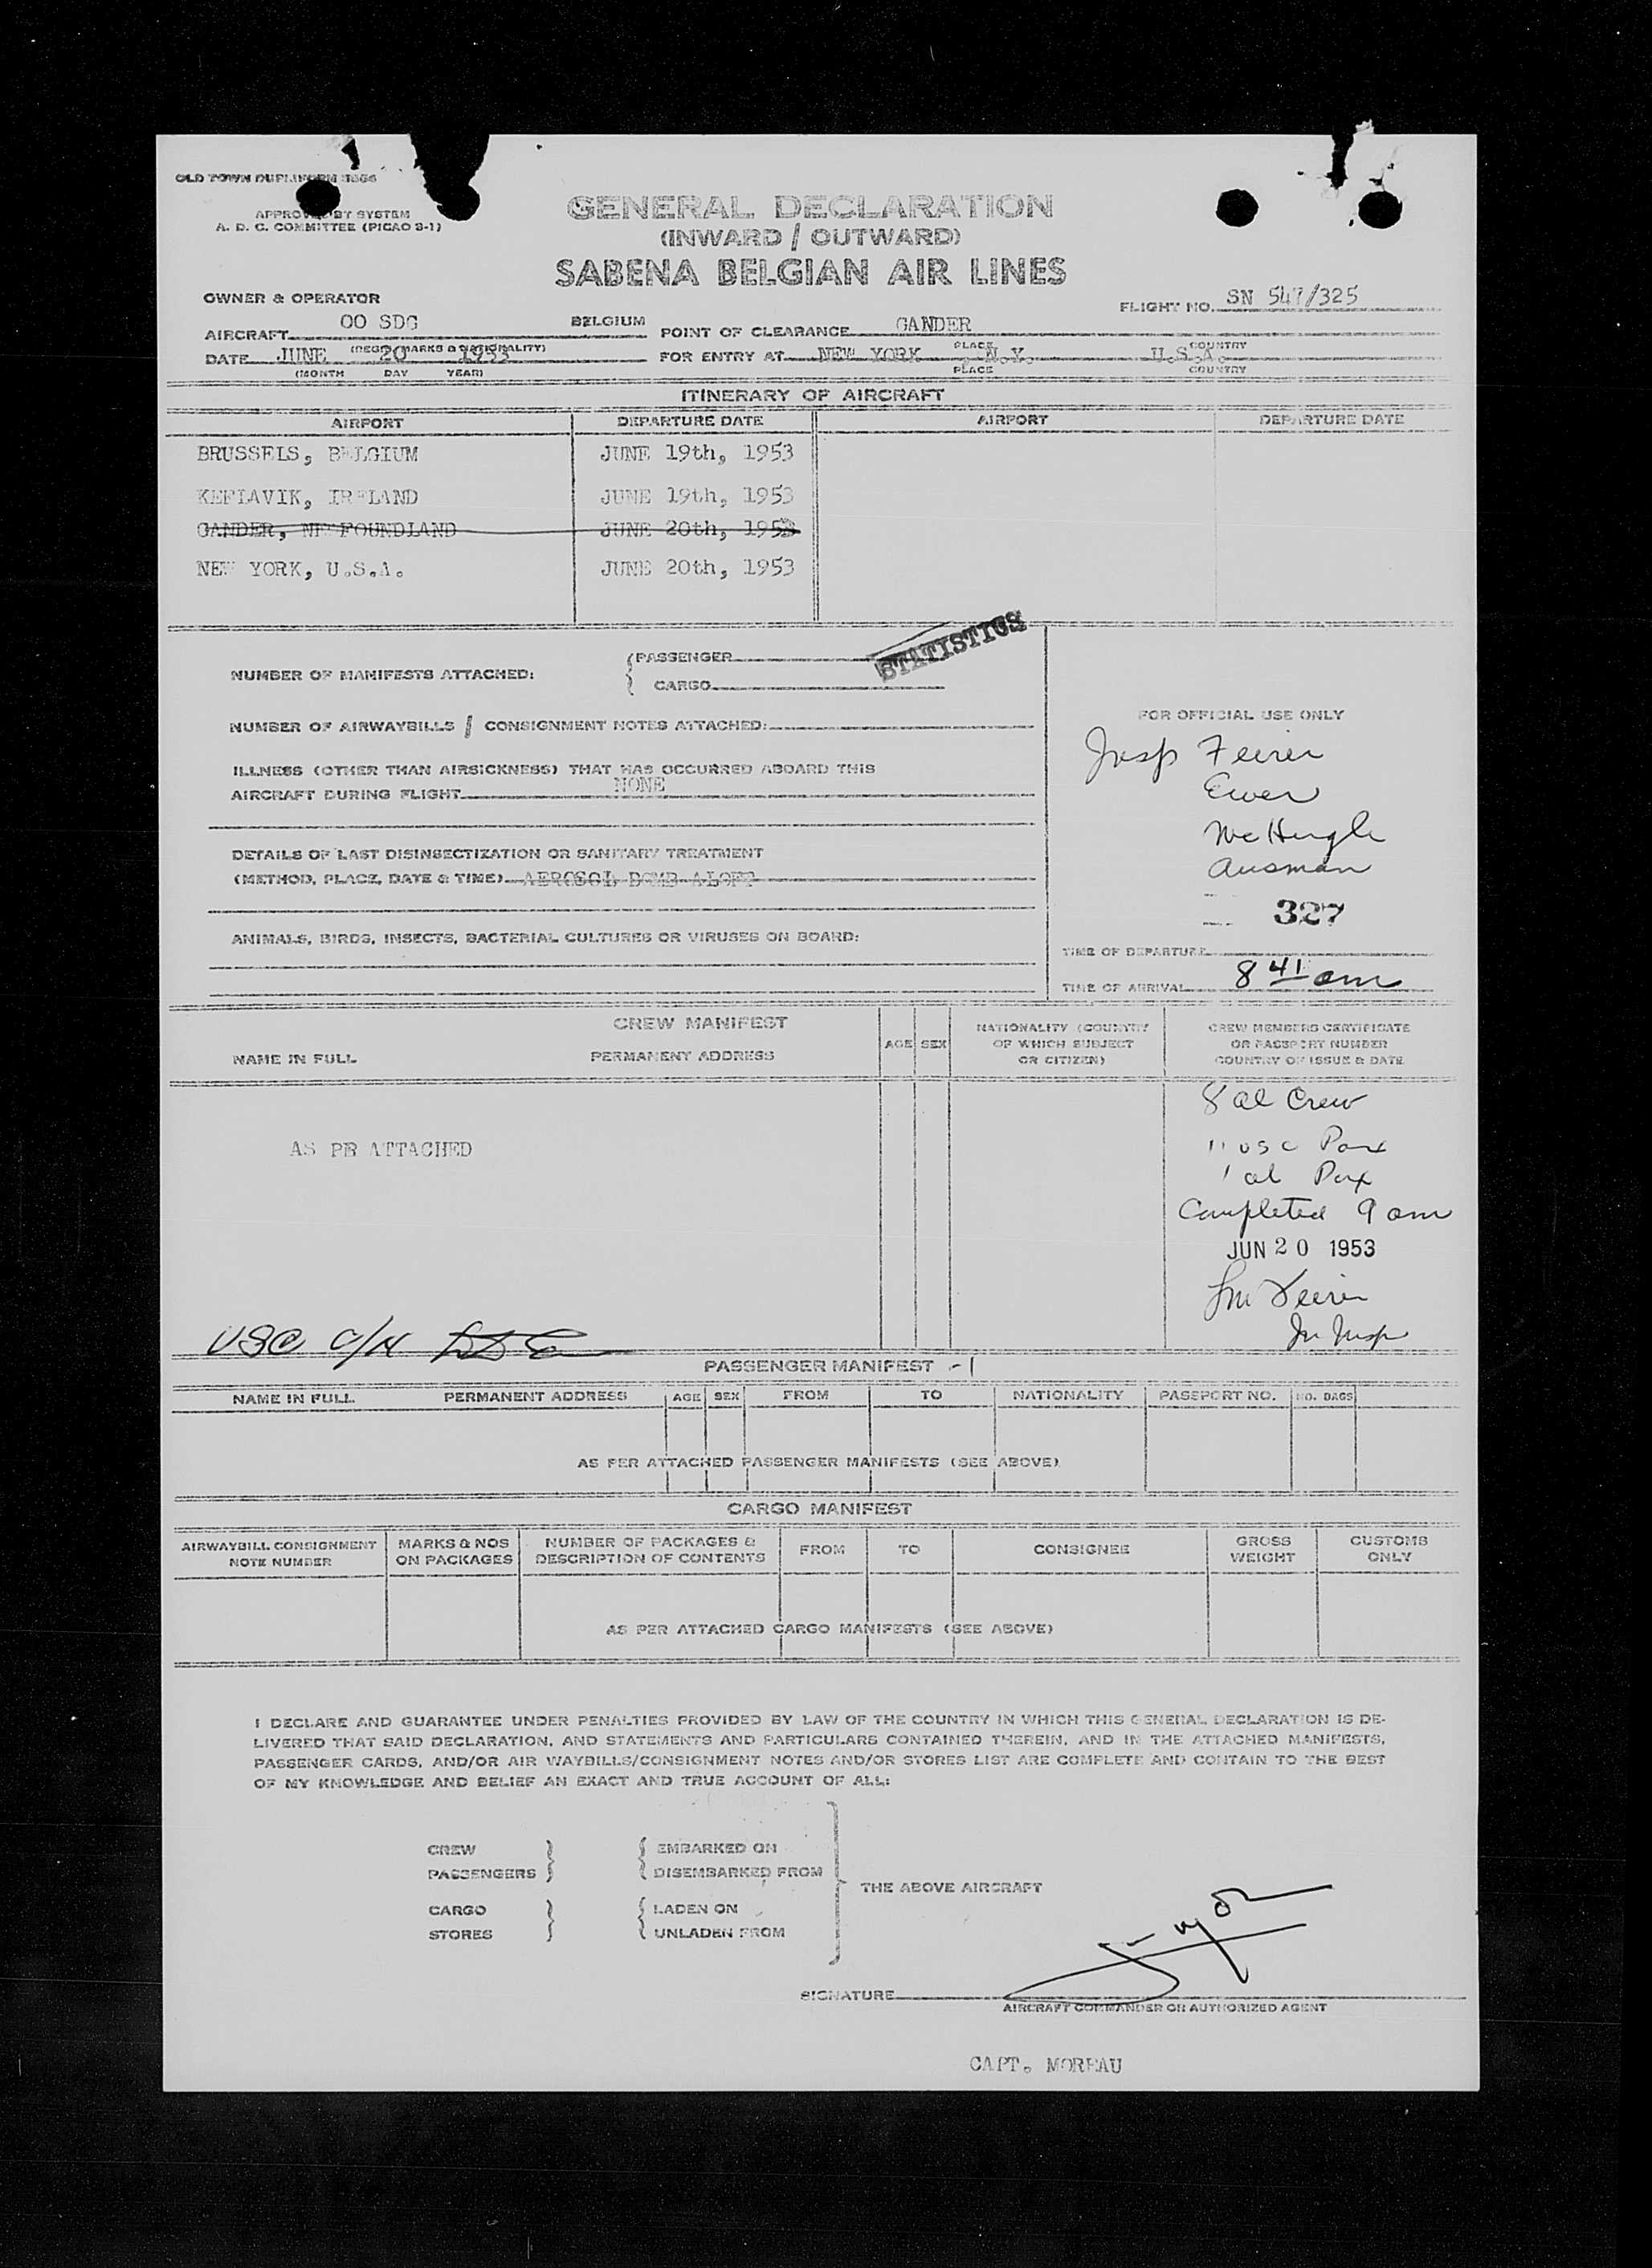 OLD TOWN DUPLIFORM
APPROVED BY SYSTEM
A. D. C. COMMITTEE (PICAO 3-1)
GENERAL DECLARATION
(INWARD / OUTWARD)
SABENA BELGIAN AIR LINES
OWNER & OPERATOR
FLIGHT NO. SN 547/325
AIRCRAFT OO SDG BELGIUM POINT OF CLEARANCE GANDER
(REGIS. MARKS & NATIONALITY) PLACE COUNTRY
DATE JUNE 20 1953 FOR ENTRY AT NEW YORK , N.Y. U.S.A.
(MONTH DAY YEAR) PLACE COUNTRY
ITINERARY OF AIRCRAFT
AIRPORT DEPARTURE DATE AIRPORT DEPARTURE DATE
BRUSSELS, BELGIUM JUNE 19th, 1953
KEFLAVIK, IRELAND JUNE 19th, 1953
GANDER, NEWFOUNDLAND JUNE 20th, 1953
NEW YORK, U.S.A. JUNE 20th, 1953
STATISTICS
NUMBER OF MANIFESTS ATTACHED: PASSENGER
CARGO
NUMBER OF AIRWAYBILLS / CONSIGNMENT NOTES ATTACHED:
ILLNESS (OTHER THAN AIRSICKNESS) THAT HAS OCCURRED ABOARD THIS
AIRCRAFT DURING FLIGHT NONE
DETAILS OF LAST DISINSECTIZATION OR SANITARY TREATMENT
(METHOD, PLACE, DATE & TIME) AEROSOL BOMB ALOFT
ANIMALS, BIRDS, INSECTS, BACTERIAL CULTURES OR VIRUSES ON BOARD:
FOR OFFICIAL USE ONLY
Insp Feirer
Ewer
McHugh
Ausman
327
TIME OF DEPARTURE
TIME OF ARRIVAL 8 41 am
CREW MANIFEST
NAME IN FULL PERMANENT ADDRESS AGE SEX NATIONALITY (COUNTRY OF WHICH SUBJECT OR CITIZEN) CREW MEMBERS CERTIFICATE OR PASSPORT NUMBER COUNTRY OF ISSUE & DATE
8 al Crew
AS PR ATTACHED
11 USC Pax
1 al Pax
Completed 9 am
JUN 20 1953
Feirer
Im Insp
USC C/N
PASSENGER MANIFEST -1
NAME IN FULL PERMANENT ADDRESS AGE SEX FROM TO NATIONALITY PASSPORT NO. NO. BAGS
AS PER ATTACHED PASSENGER MANIFESTS (SEE ABOVE)
CARGO MANIFEST
AIRWAYBILL CONSIGNMENT NOTE NUMBER MARKS & NOS ON PACKAGES NUMBER OF PACKAGES & DESCRIPTION OF CONTENTS FROM TO CONSIGNEE GROSS WEIGHT CUSTOMS ONLY
AS PER ATTACHED CARGO MANIFESTS (SEE ABOVE)
I DECLARE AND GUARANTEE UNDER PENALTIES PROVIDED BY LAW OF THE COUNTRY IN WHICH THIS GENERAL DECLARATION IS DE-
LIVERED THAT SAID DECLARATION, AND STATEMENTS AND PARTICULARS CONTAINED THEREIN, AND IN THE ATTACHED MANIFESTS,
PASSENGER CARDS, AND/OR AIR WAYBILLS/CONSIGNMENT NOTES AND/OR STORES LIST ARE COMPLETE AND CONTAIN TO THE BEST
OF MY KNOWLEDGE AND BELIEF AN EXACT AND TRUE ACCOUNT OF ALL:
CREW EMBARKED ON
PASSENGERS DISEMBARKED FROM
THE ABOVE AIRCRAFT
CARGO LADEN ON
STORES UNLADEN FROM
SIGNATURE
AIRCRAFT COMMANDER OR AUTHORIZED AGENT
CAPT. MOREAU